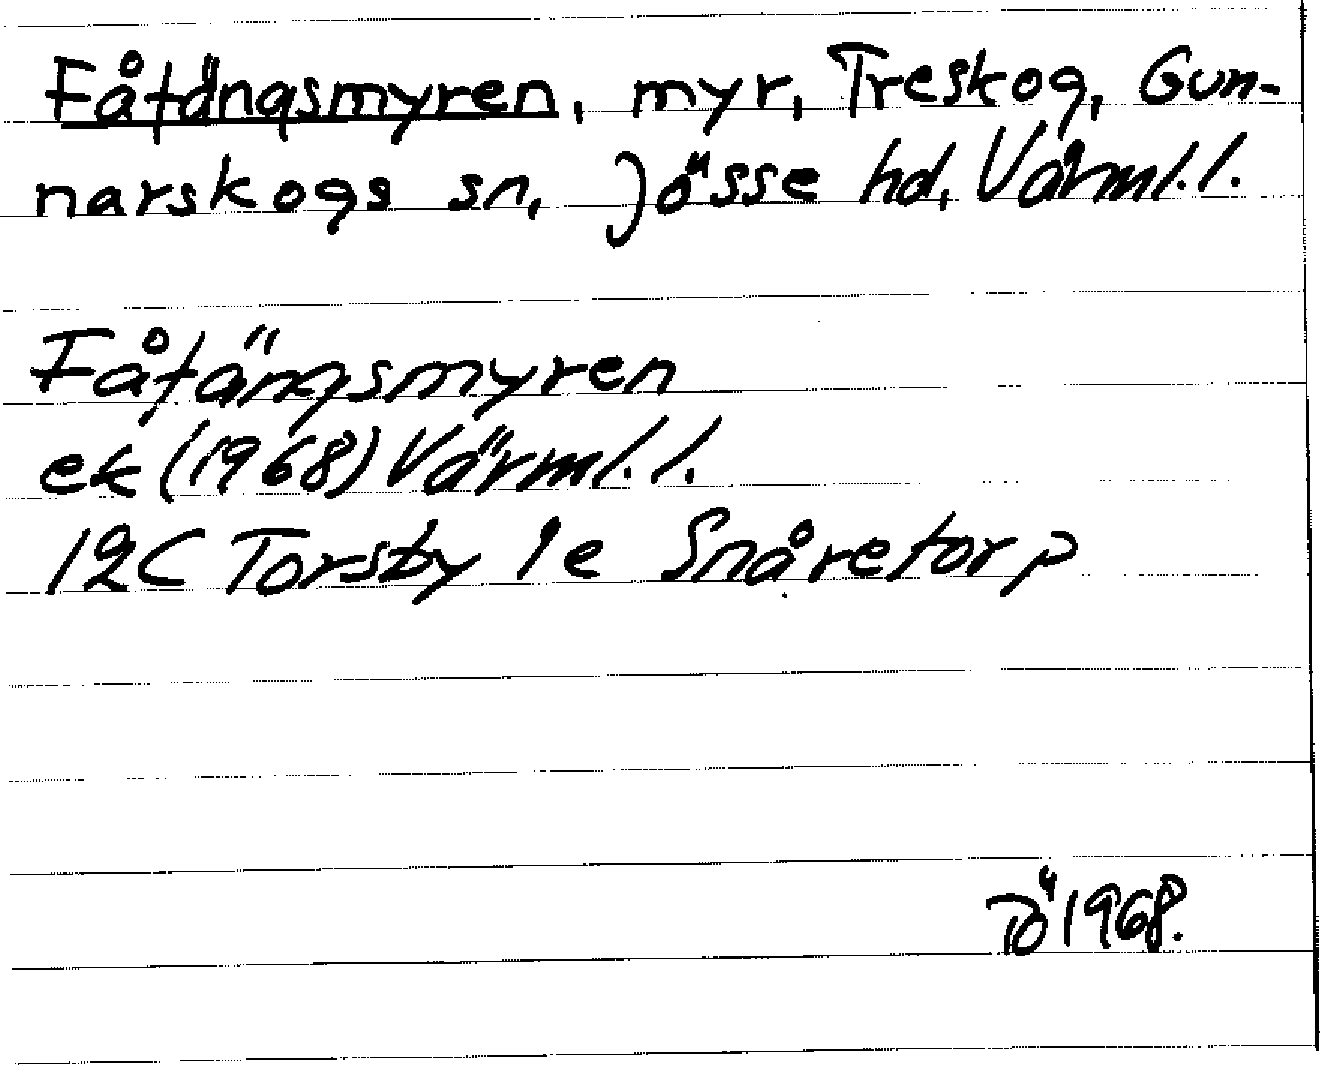 Fåfängsmyren, myr, Treskog, Gun-
narskogs sn, Jösse hd, Värml.l.
Fåfängsmyren
ek (1968) Värml.l.
12C Torsby 1e Snåretorp
TÖ 1968.